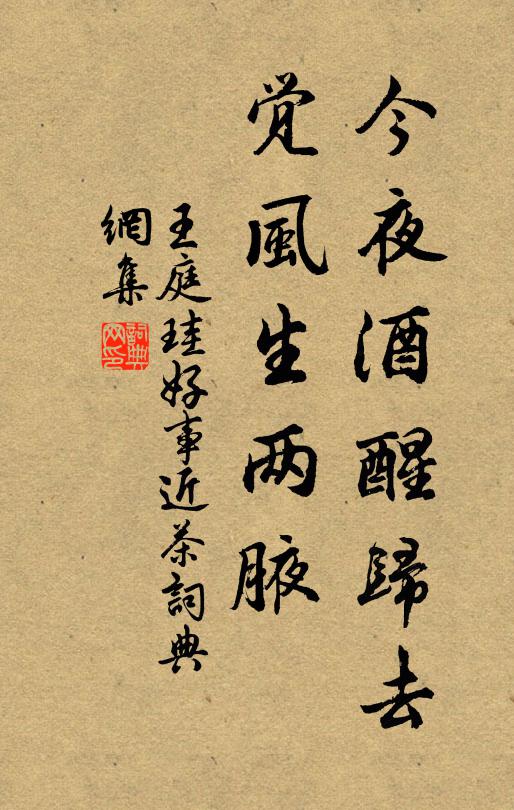 今夜酒醒歸去
觉風生两腋
王庭珪好事近茶詞典
網集
詞典網印